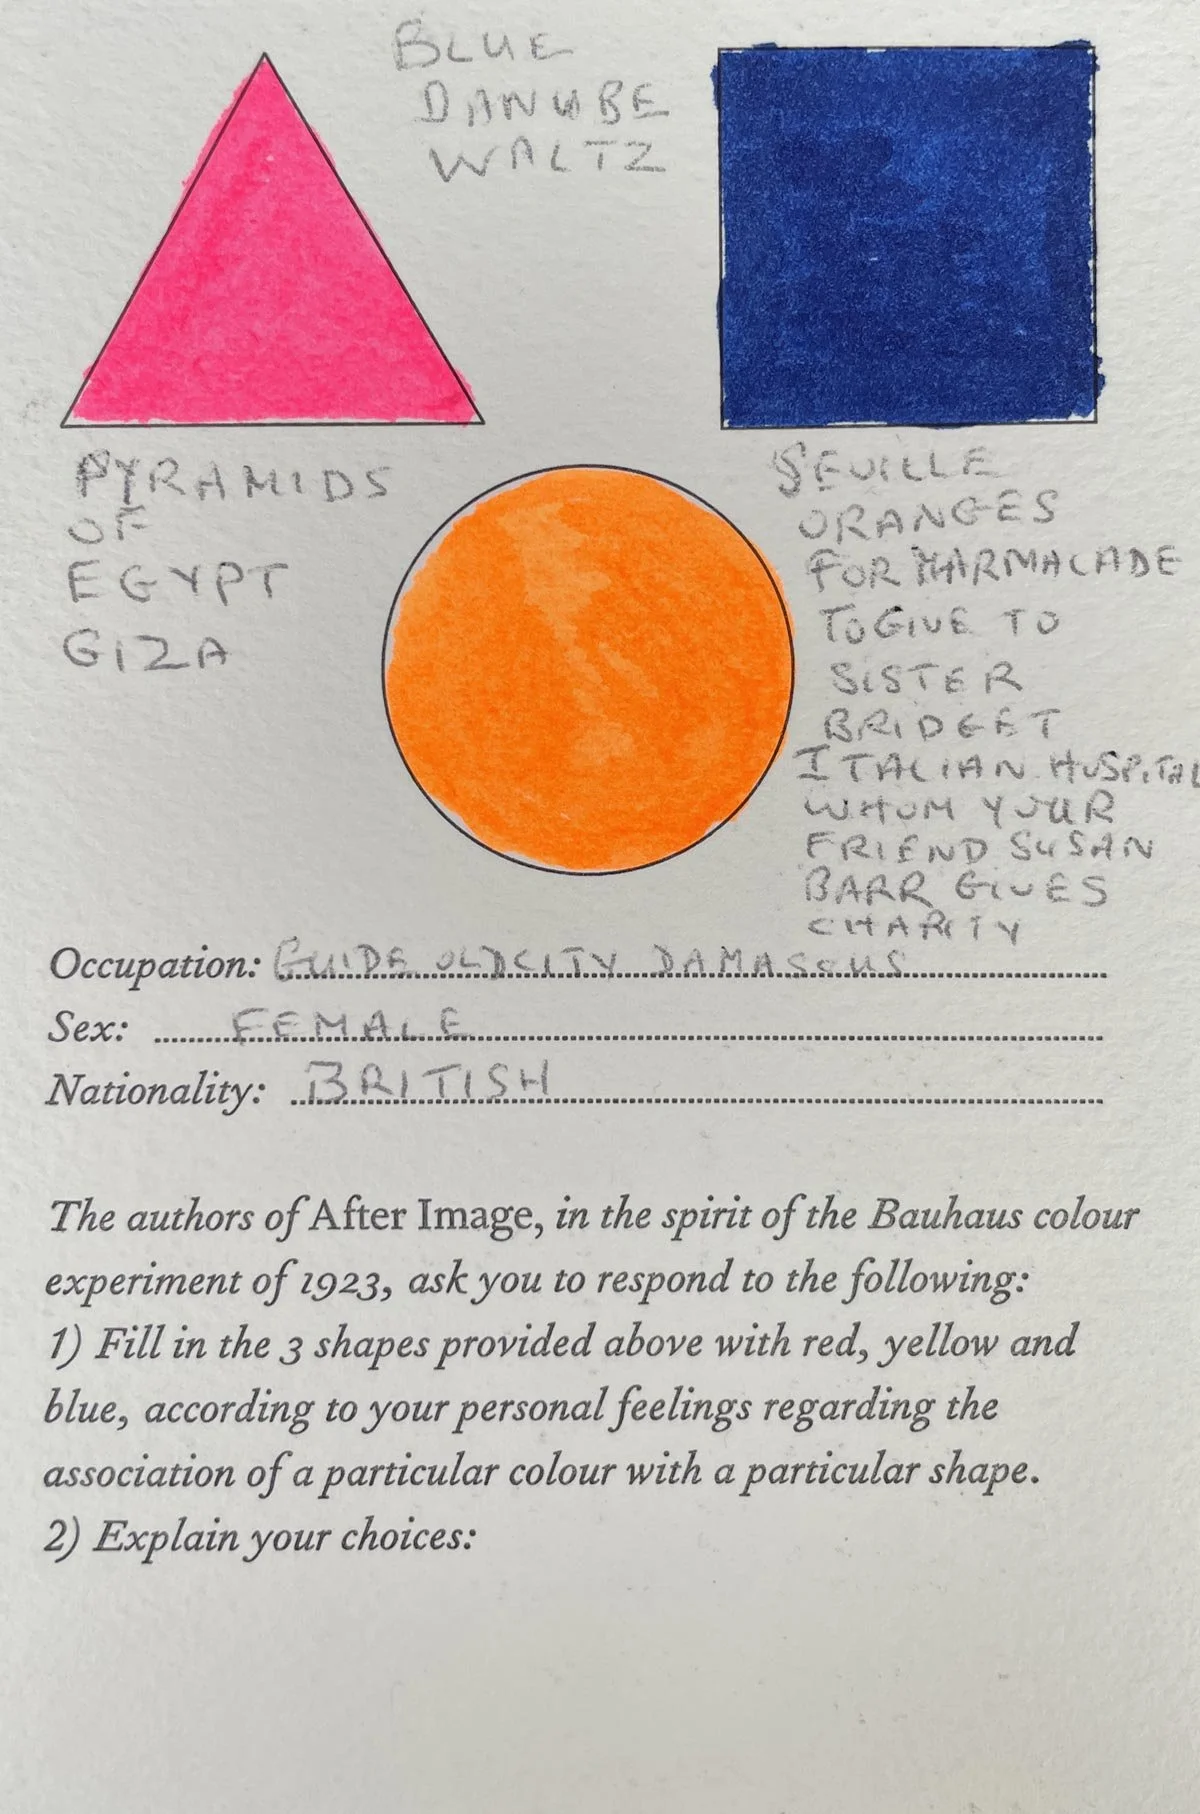 BLUE
DANUBE
WALTZ
PYRAMIDS
OF
EGYPT
GIZA
SEVILLE
ORANGES
FOR MARMALADE
TO GIVE TO
SISTER
BRIDGET
ITALIAN HOSPITAL
WHOM YOUR
FRIEND SUSAN
BARR GIVES
CHARITY
Occupation: GUIDE OLD CITY DAMASCUS
Sex: FEMALE
Nationality: BRITISH
The authors of After Image, in the spirit of the Bauhaus colour
experiment of 1923, ask you to respond to the following:
1) Fill in the 3 shapes provided above with red, yellow and
blue, according to your personal feelings regarding the
association of a particular colour with a particular shape.
2) Explain your choices: